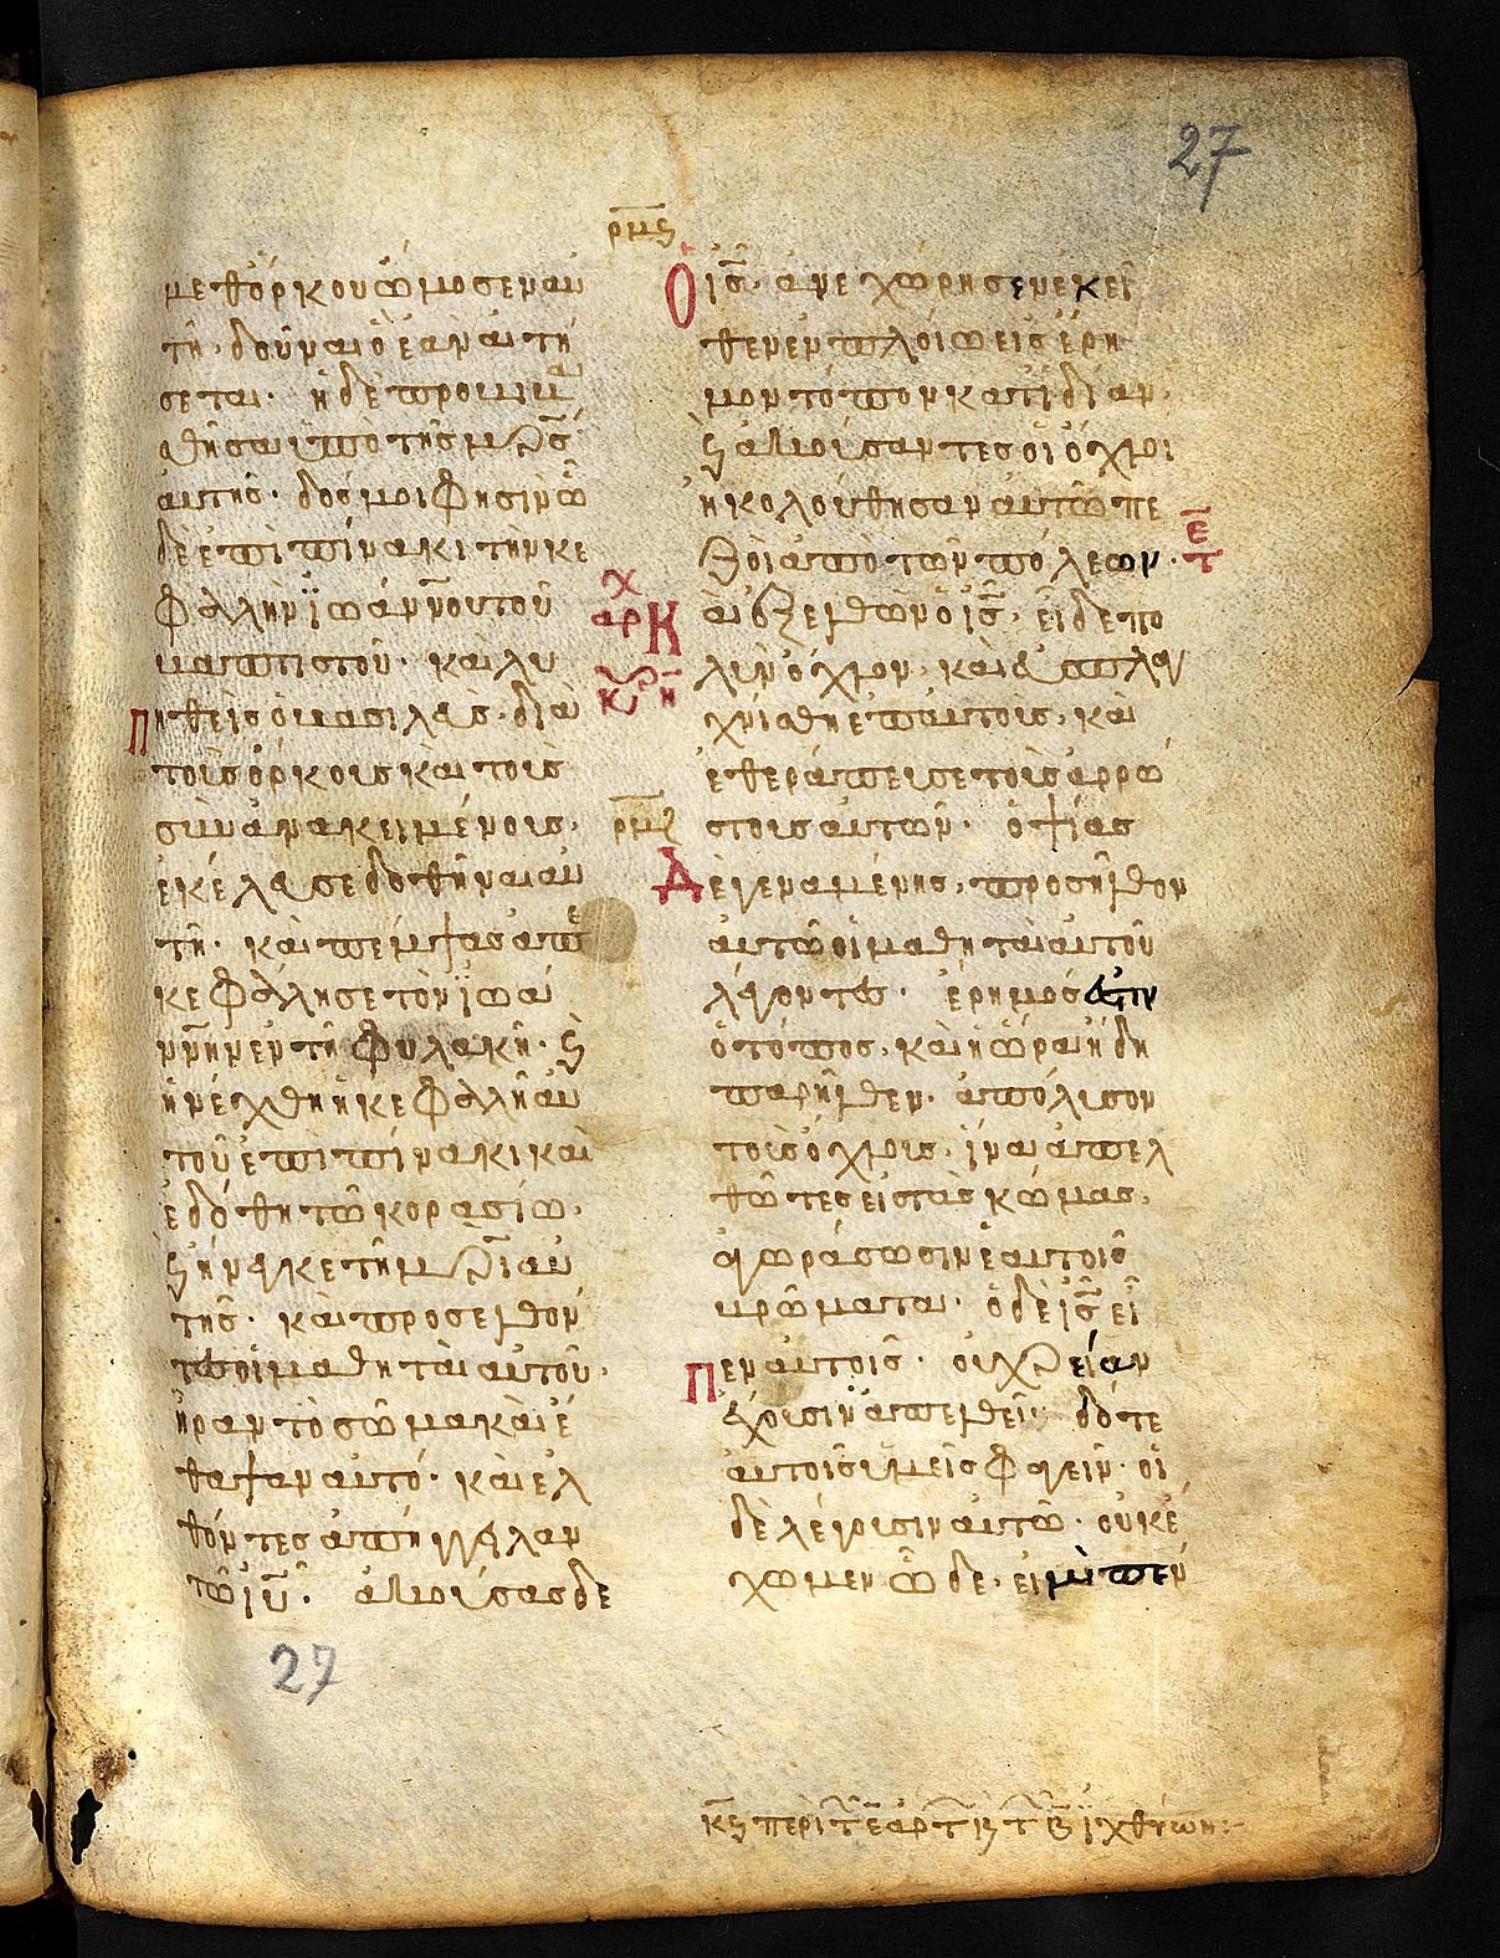 27
ρμϛ
μεθ ὅρκου ὡμοσεν αὐ
τῆ· δοῦναι ὃ ἐὰν αἰτή
σεται· ἡ δὲ προβιβα
σθῆσα ὑπὸ τῆς μρ̅ς
αὐτῆς· δός μοι φησὶν ὧ
δὲ ἐπὶ πίνακι τὴν κε
φαλὴν ϊωάννου τοῦ
βαπτιστοῦ· καὶ λυ
πηθεὶς ὁ βασιλεὺς· διὰ
τοὺς ὅρκους καὶ τοὺς
συνανακειμένους·
ἐκέλευσε δοθῆναι αὐ
τῆ· καὶ πέμψας ἀπε
κεφάλησε τὸν ϊωά
ννην ἐν τῆ φυλακῆ· ϗ
ἠνέχθη ἡ κεφαλὴ αὐ
τοῦ ἐπὶ πίνακι καὶ
ἐδόθη τῶ κορασίω·
ϗ ἤνεγκε τῆ μρ̅ι αὐ
τῆς· καὶ προσελθόν
τες οἱ μαθηταὶ αὐτοῦ·
ἦραν τὸ σῶμα καὶ ἔ
θαψαν αὐτό· καὶ ἐλ
θόντες ἀπήγγειλαν
τῶ ιυ̅· ἀκούσας δε
27
Ὁ ις̅· ἀνεχώρησεν ἐκεῖ
θεν ἐν πλοίω εἰς ἔρη
μον τόπον κατιδίαν·
ϗ ἀκούσαντες οἱ ὄχλοι
ἠκολούθησαν αὐτῶ πε
ζοὶ ἀπὸ τῶν πόλεων·
ε̅
τ
χ
αρ
Κ
κυ η̅
αὶ ἐξελθὼν ὁ ις̅· εἶδε πο
λὺν ὄχλον· καὶ ἐσπλαγ
χνίσθη ἐπ αὐτοῖς· καὶ
ἐθεράπευσε τοὺς ἀρρώ
στους αὐτῶν· ὀψίας
ρμζ
Δὲ γεναμένης· προσῆλθον
αὐτῶ οἱ μαθηταὶ αὐτοῦ
λέγοντες· ἔρημός ἐστιν
ὁ τόπος· καὶ ἡ ὥρα ἤδη
παρῆλθεν· ἀπόλυσον
τοὺς ὄχλους· ἵνα ἀπελ
θῶντες εἰς τὰς κώμας·
ἀγωράσωσιν ἑαυτοῖς
βρώματα· ὁ δὲ ις̅ εἶ
πεν αὐτοῖς· οὐ χρείαν
ἔχουσιν ἀπελθεῖν· δότε
αὐτοῖς ὑμεῖς φαγεῖν· οἱ
δὲ λέγουσιν αὐτῶ· οὐκ ἔ
χωμεν ὧδε· εἰ μὴ πέν
κϛ περὶ τ ε̅ αρτ ϗ τ β̅ ϊχθύων: